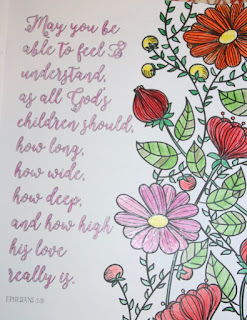 May you be
able to feel &
understand,
as all God's
children should,
how long,
how wide,
how deep,
and how high
his love
really is.
EPHESIANS 3:18